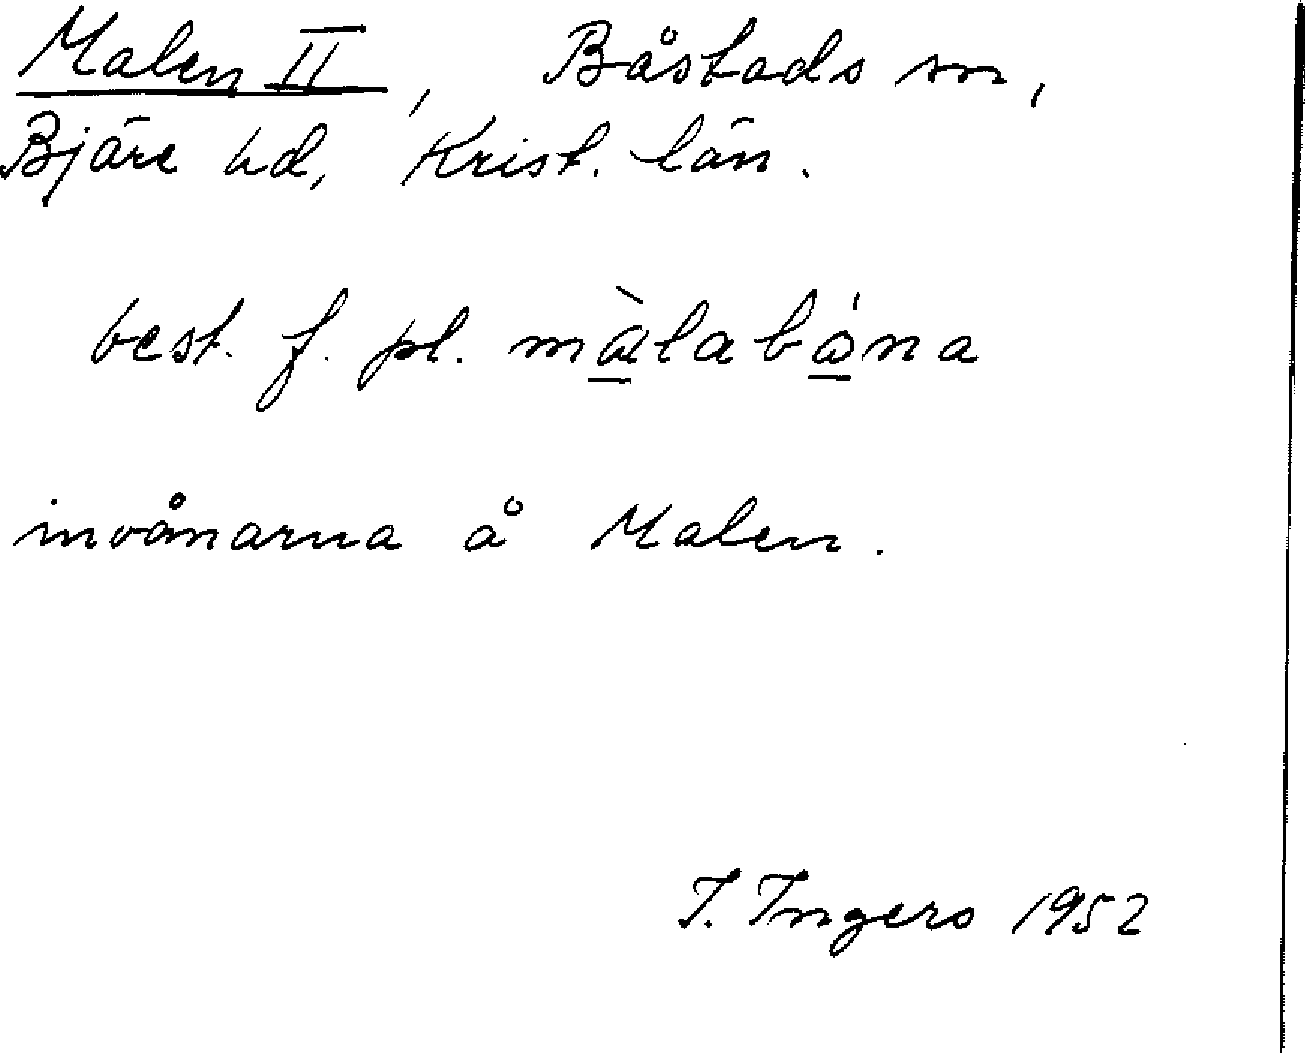 Malen II, Båstads sn,
Bjäre hd, Krist. län.
best. f. pl. màlabóna
invånarna å Malen.
I. Ingers 1952